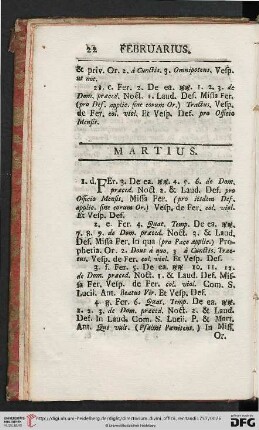 22 FEBRUARIUS.
& priv. Or. 2. à Cunctis. 3. Omnipotens, Vesp.
ut noc.
21. c. Fer. 2. De ea. ꝟꝟ. 1. 2. 3. de
Dom. præced. Noct. 1. Laud. Def. Missa Fer.
(pro Def. applic. sine eorum Or.) Tractus, Vesp.
de Fer. col. viol. Et Vesp. Def. pro Officio
Mensis.
MARTIUS.
1. d. FEr. 3. De ea. 4. 5. 6. de Dom.
præced. Noct 2. & Laud. Def. pro
Officio Mensis, Missa Fer. (pro iisdem Def.
applic. sine eorum Or.) Vesp. de Fer. col. viol.
Et Vesp. Def.
2. e. Fer. 4. Quat. Temp. De ea.
7. 8. 9. de Dom. præced. Noct. 3. & Laud.
Def. Missa Fer. In qua (pro Pace applic.) Pro-
pheria. Or. 2. Deus à quo, 3. à Cunctis, Trac-
tus, Vesp. de Fer. col. viol. Et Vesp. Def.
3. f. Fer. 5. De ea. 10. 11. 12.
de Dom. præced. Noct. 1. & Laud. Def. Mis-
sa Fer. Vesp. de Fer. col. viol. Com. S.
Lucii. Ant. Beatus Vir. Et Vesp. Def.
4. g. Fer. 6. Quat. Temp. De ea.
1. 2. 3. de Dom. præced. Noct. 2. & Laud.
Def. In Laud. Com. S. Lucii P. & Mart.
Ant. Qui vult. (Psalmi Pœnitent.) In Miss.
Or.
DFG